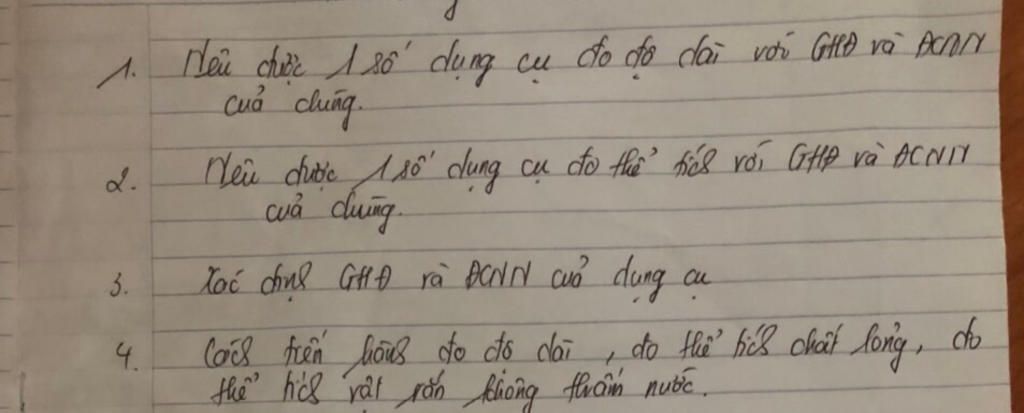 1. Nêu được 1 số dụng cụ đo độ dài với GHĐ và ĐCNN
của chúng.
2. Nêu được 1 số dụng cụ đo thể tích với GHĐ và ĐCNN
của chúng.
3. Xác định GHĐ và ĐCNN của dụng cụ
4. Cách tiến hành đo độ dài, đo thể tích chất lỏng, đo
thể tích vật rắn không thấm nước.